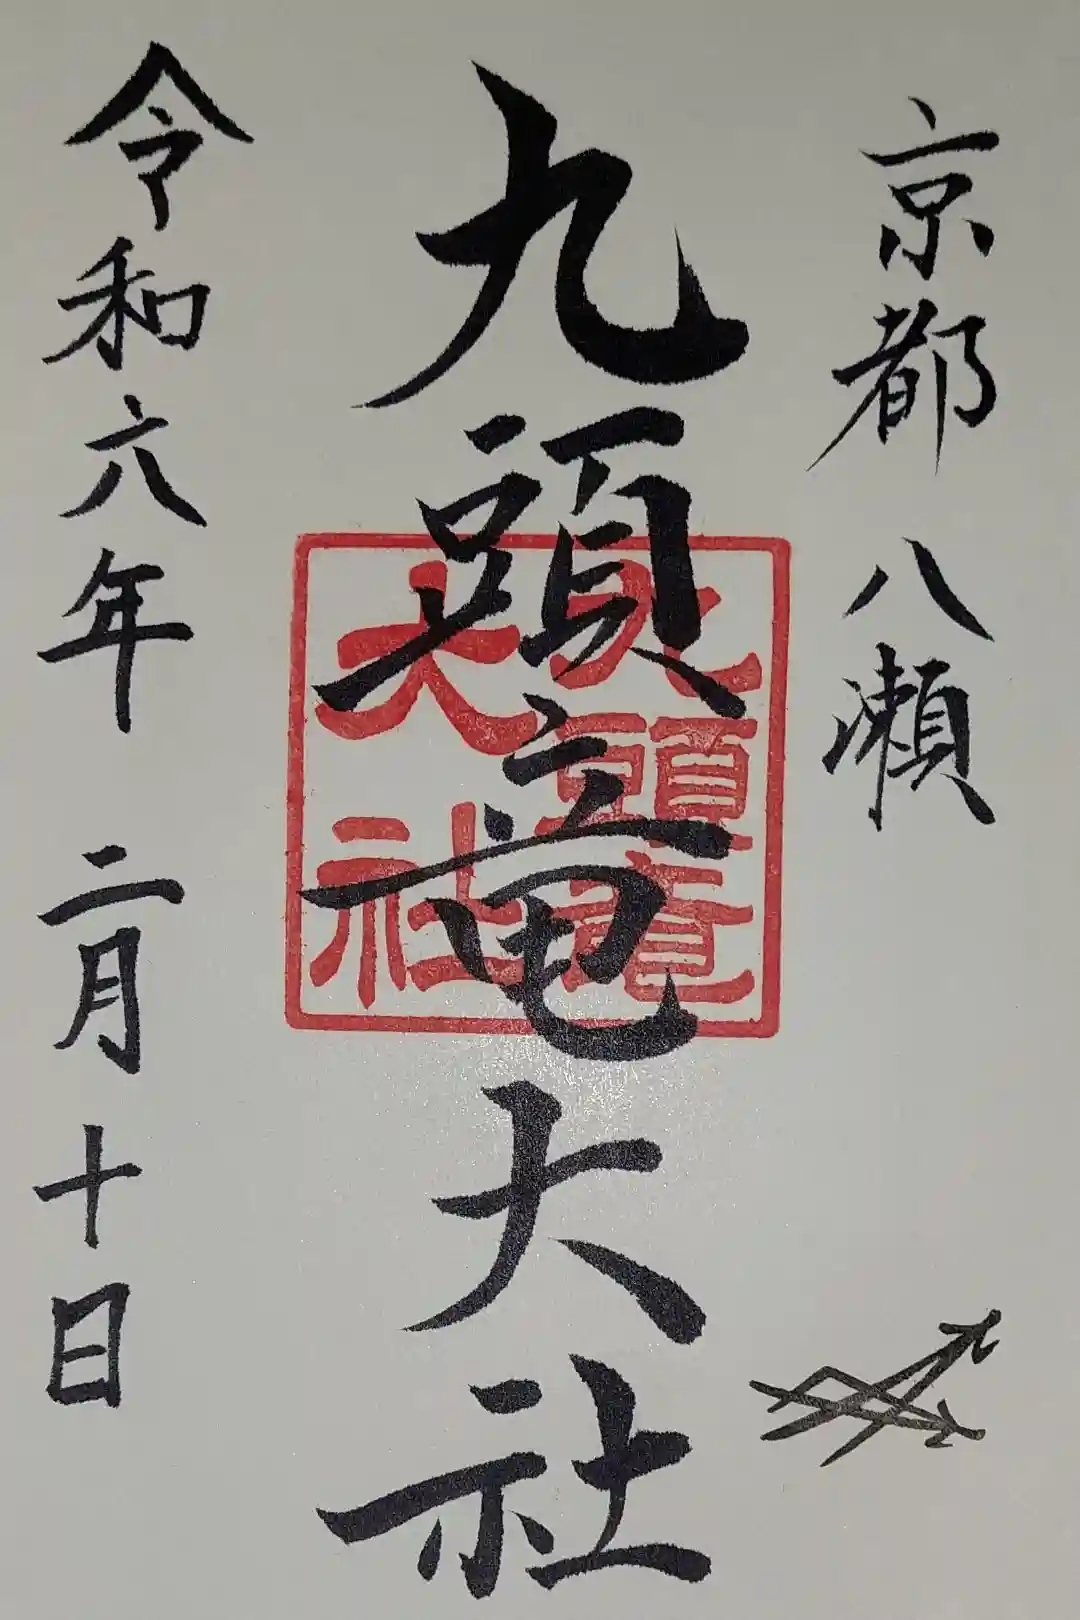 京都 八瀬
九頭竜大社
九頭竜
大社
令和六年 二月十日